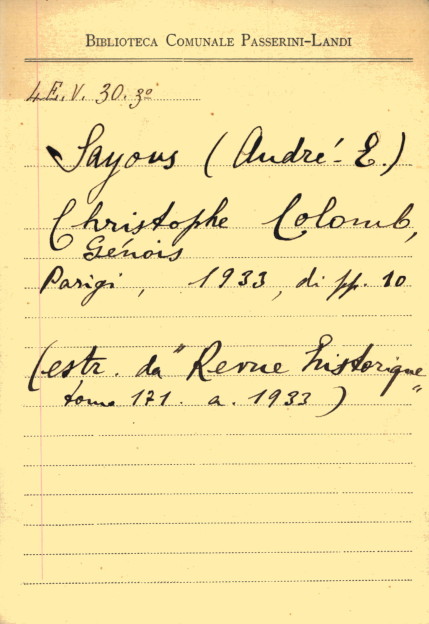 BIBLIOTECA COMUNALE PASSERINI-LANDI
4E.V. 30. 3º
Sayous (André-E.)
Christophe Colomb,
Génois
Parigi, 1933, di pp. 10
(estr. da "Revue historique"
tome 171. a. 1933)